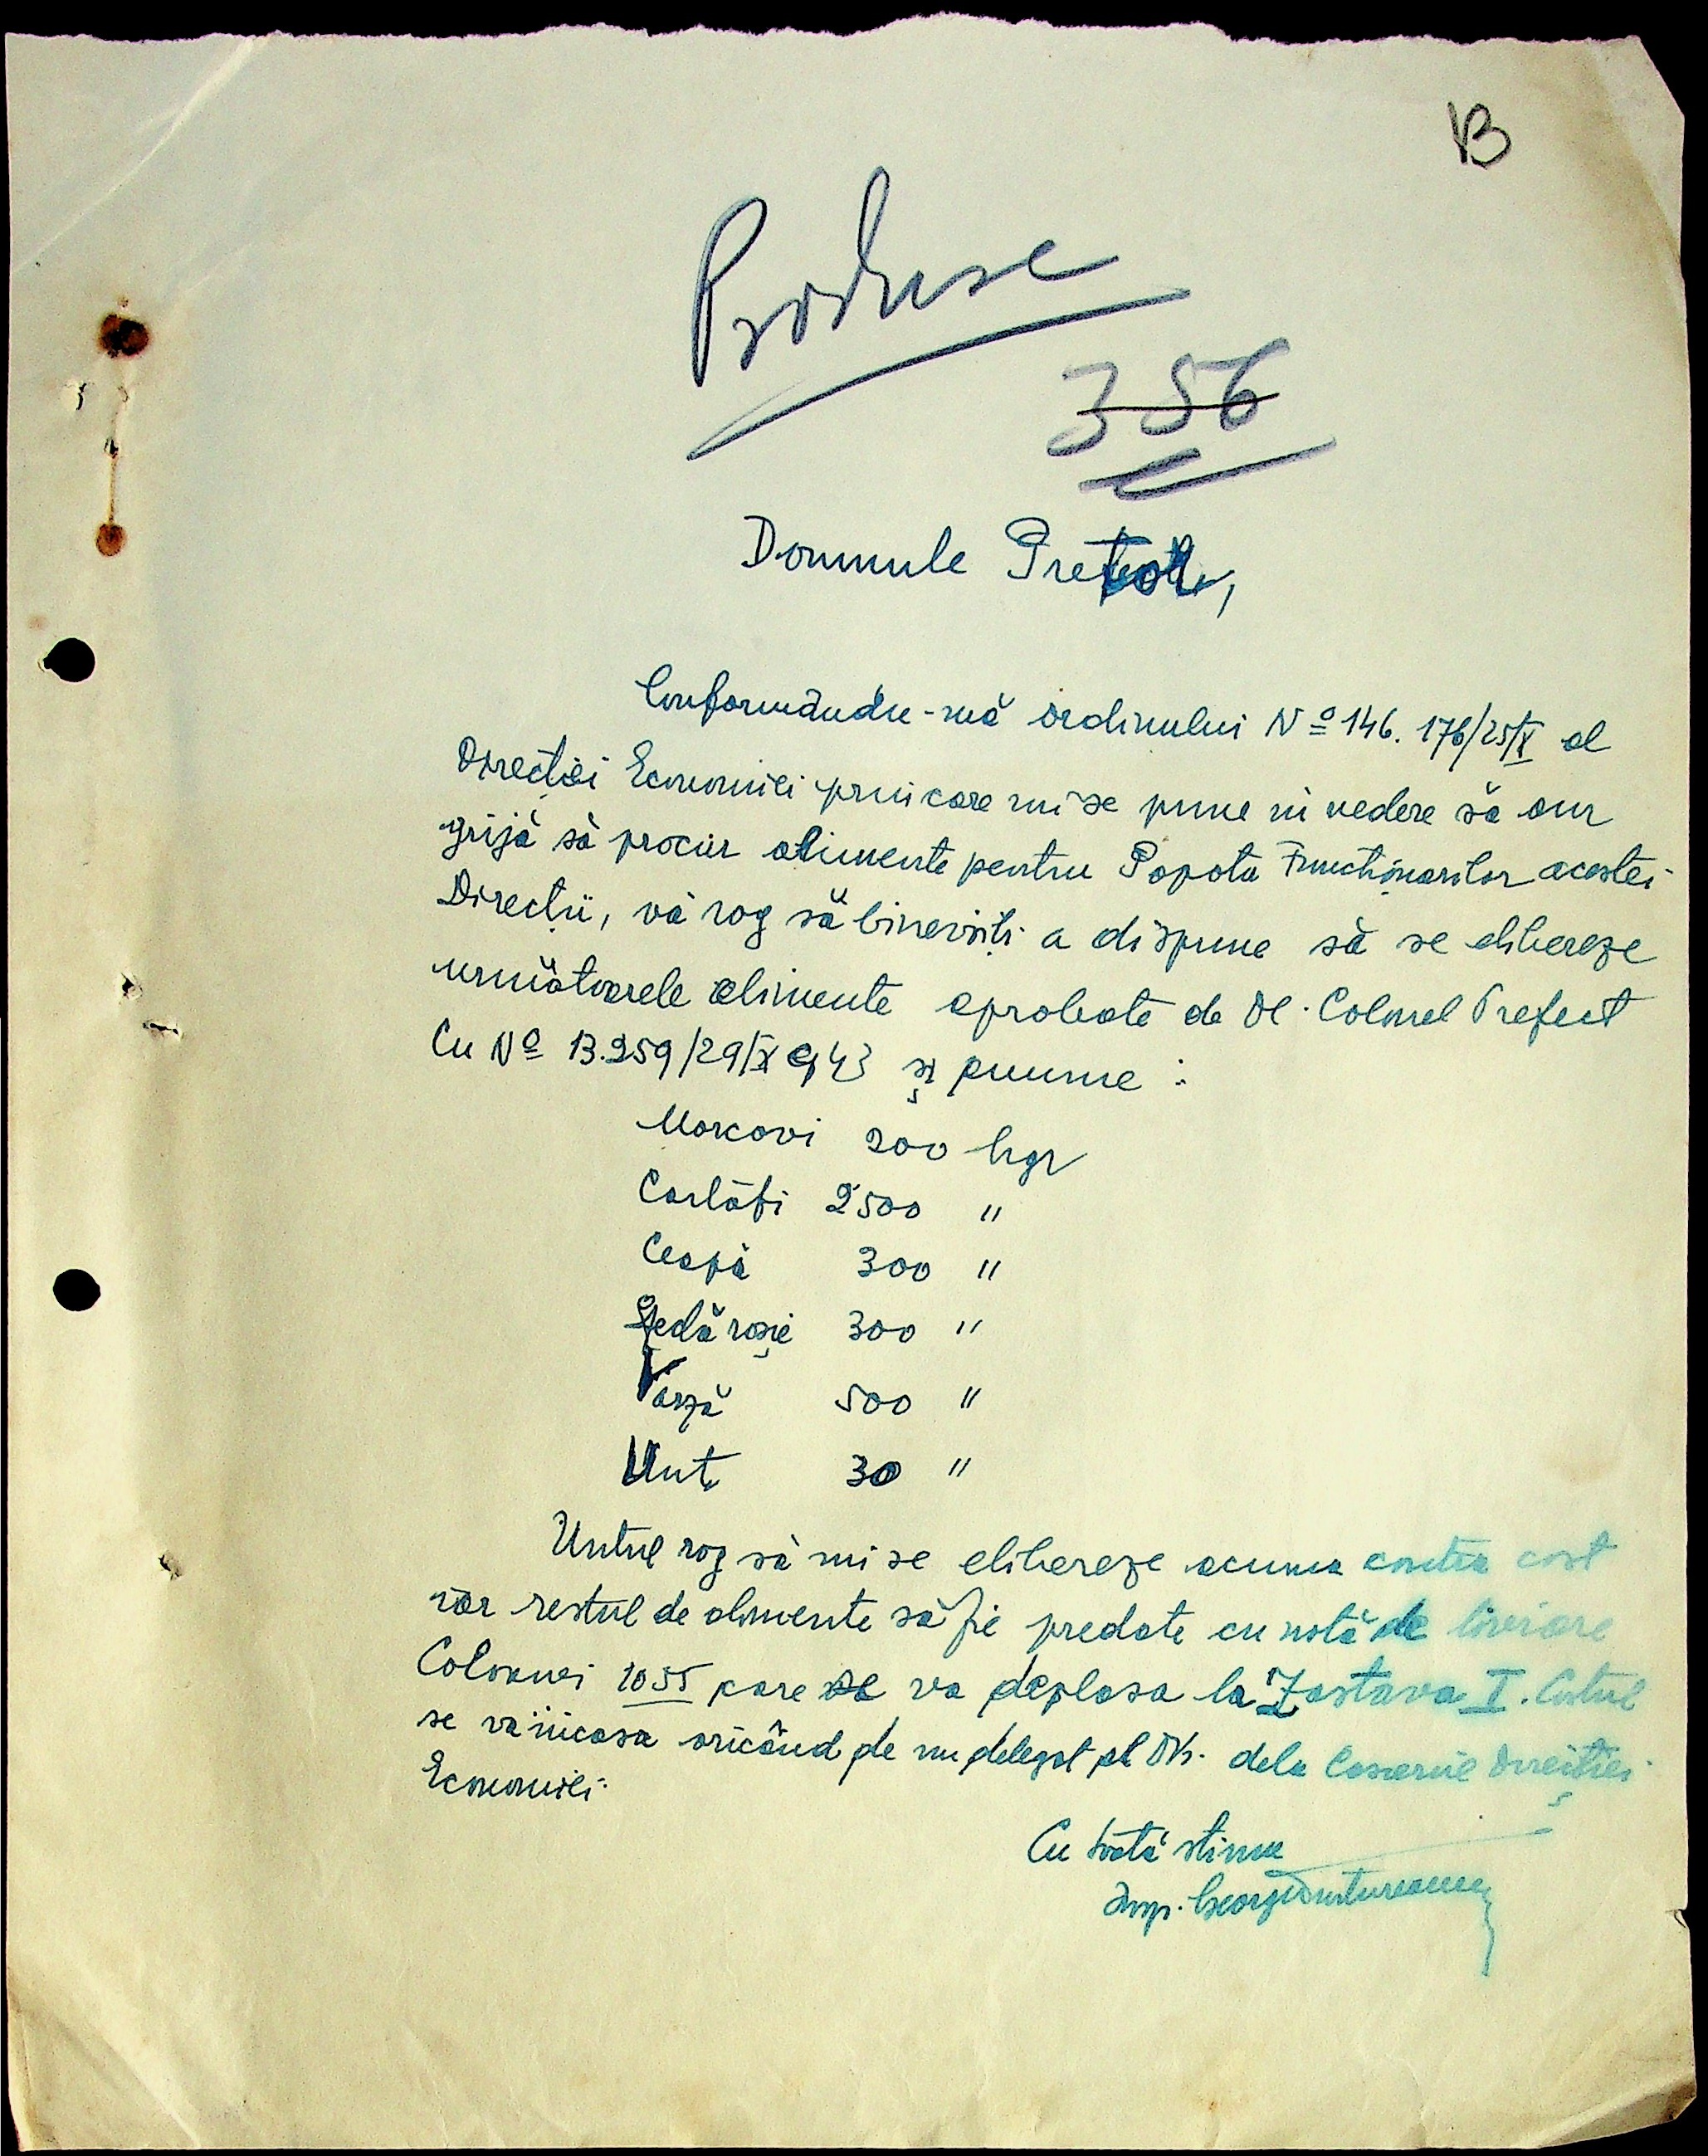 13
Produse
356
Domnule Pretor,
Conformându-mă ordinului Nº 146.176/25/X al
Direcției Economiei prin care mi se pune in vedere să am
grijă să procur alimente pentru Popota Funcționarilor acestei
Direcții, vă rog să binevoiți a dispune să se elibereze
următoarele alimente aprobate de Dl. Colonel Prefect
Cu Nº 13.259/29/X 943 și anume :
Morcovi 200 kgr
Cartofi 2500 "
Ceapă 300 "
Sfeclă roșie 300 "
Varză 500 "
Unt 30 "
Untul rog să mi se elibereze acuma contra cost
iar restul de alimente să fie predate cu notă de livrare
Coloanei 1055 care se va deplasa la Zastava I. Costul
se va incasa oricând de un delegat al Dv. dela Casieria Direcției
Economiei.
Cu toată stima
Insp. George